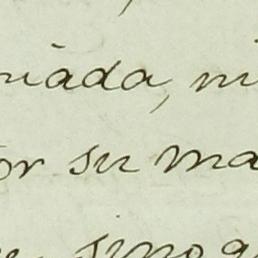 niada, ni
or su ma
sino q